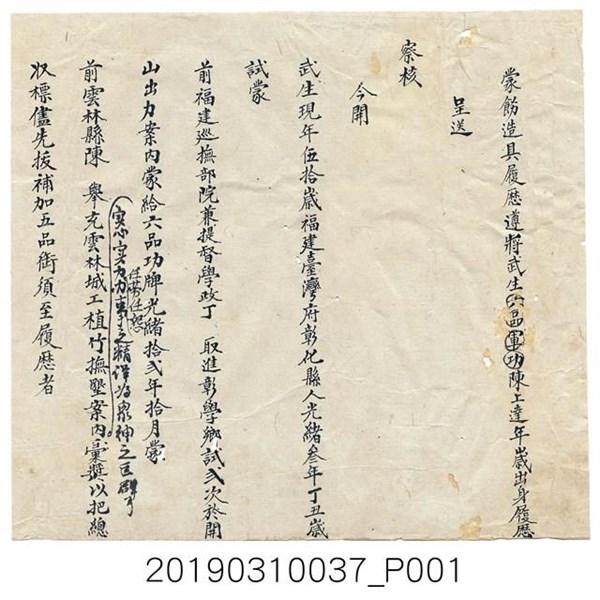 蒙飭造具履歷遵將武生六品軍功陳上達年歲出身履歷
呈送
察核
今開
武生現年伍拾歲福建臺灣府彰化縣人光緒叁年丁丑歲
試蒙
前福建巡撫部院兼提督學政丁 取進彰學鄉試弍次於開
山出力案內蒙給六品功牌光緒拾弍年拾月蒙
任勞任怨
前雲林縣陳 舉充雲林城工植竹撫墾案內彙獎以把總
收標儘先拔補加五品銜須至履歷者
20190310037_P001